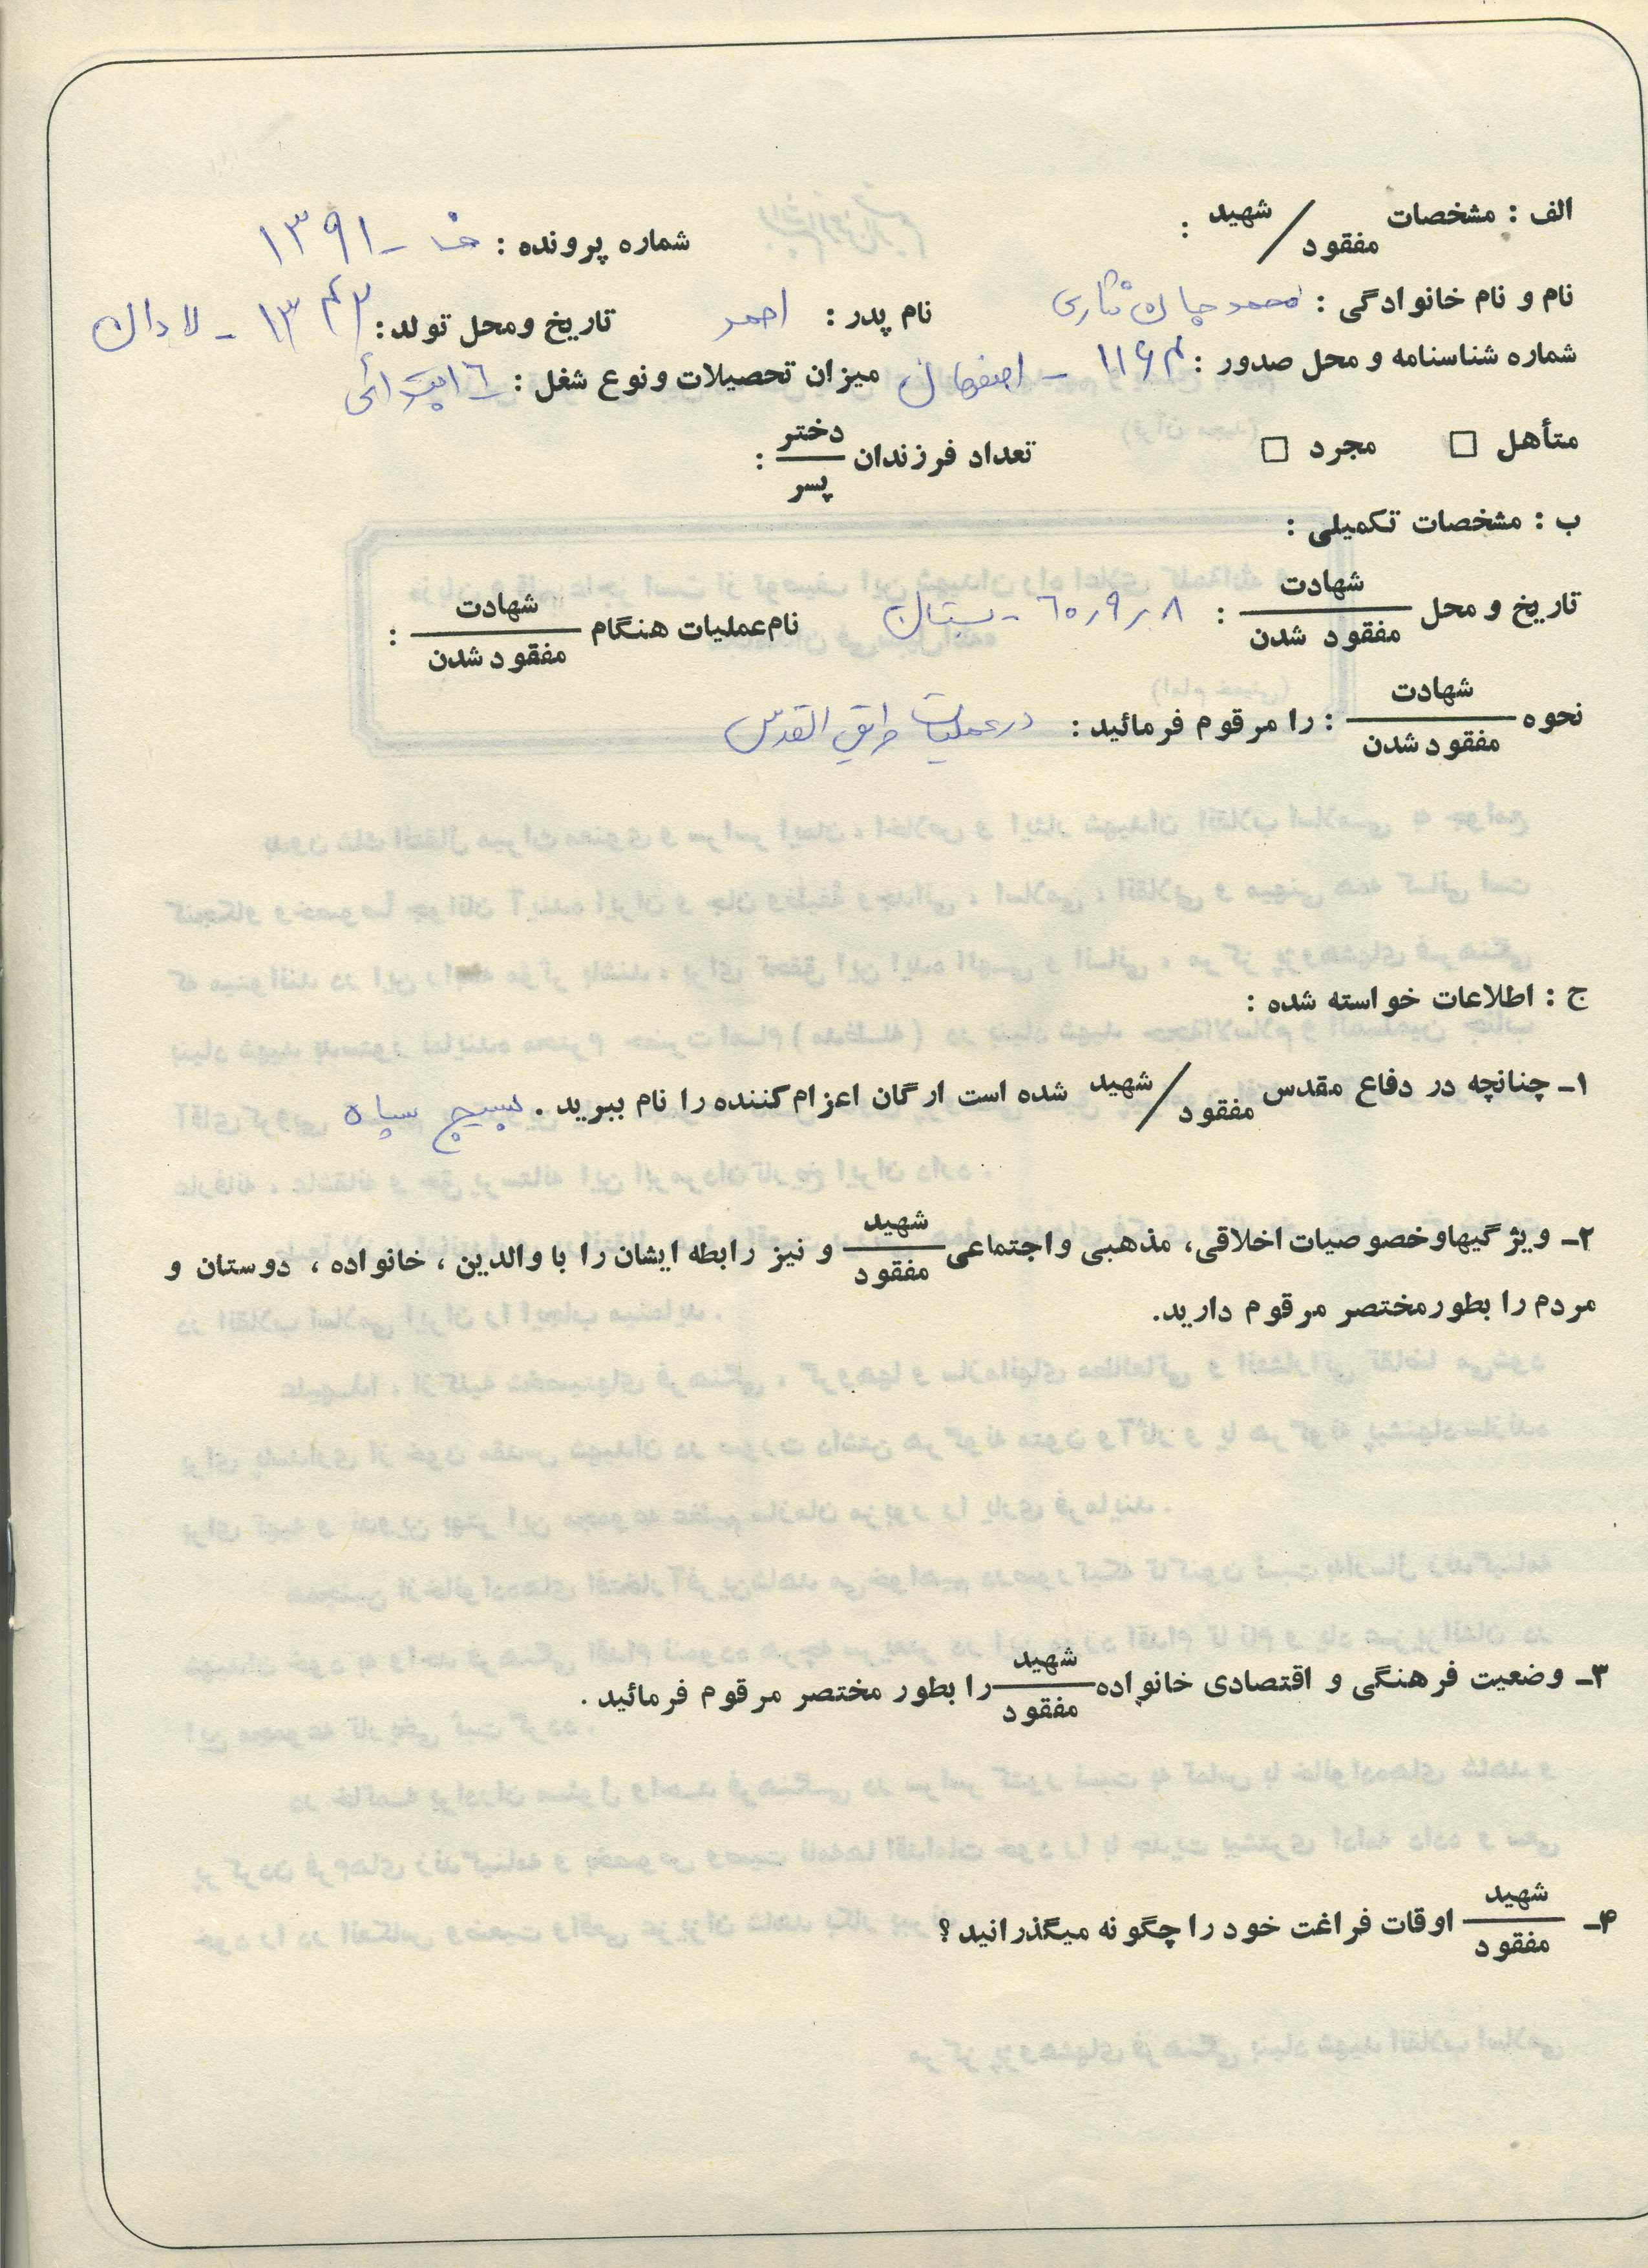 الف : مشخصات شهید / مفقود :
شماره پرونده : خ - ۱۳۹۱
نام و نام خانوادگی : محمد جان نثاری نام پدر : احمد تاریخ ومحل تولد : ۱۳۴۲ - لادان
شماره شناسنامه و محل صدور : ۱۱۶۴ - اصفهان میزان تحصیلات و نوع شغل : ۶ ابتدائی
متأهل □ مجرد □ تعداد فرزندان دختر / پسر :
ب : مشخصات تکمیلی :
تاریخ و محل شهادت / مفقود شدن : ۶۰٫۹٫۸ - بستان نام عملیات هنگام شهادت / مفقود شدن :
نحوه شهادت / مفقود شدن : را مرقوم فرمائید : در عملیات طریق القدس
ج : اطلاعات خواسته شده :
۱ـ چنانچه در دفاع مقدس شهید / مفقود شده است ارگان اعزام کننده را نام ببرید . بسیج سپاه
۲ـ ویژگیهاوخصوصیات اخلاقی، مذهبی واجتماعی شهید / مفقود و نیز رابطه ایشان را با والدین ، خانواده ، دوستان و
مردم را بطور مختصر مرقوم دارید.
۳ـ وضعیت فرهنگی و اقتصادی خانواده شهید / مفقود را بطور مختصر مرقوم فرمائید .
۴ـ شهید / مفقود اوقات فراغت خود را چگونه میگذرانید ؟